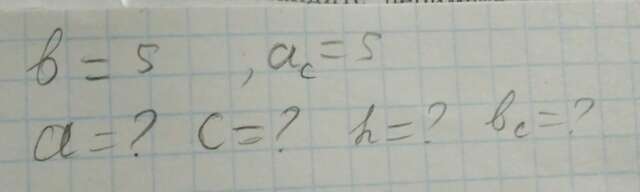 b = 5 , a_c = 5
a = ? c = ? h = ? b_c = ?